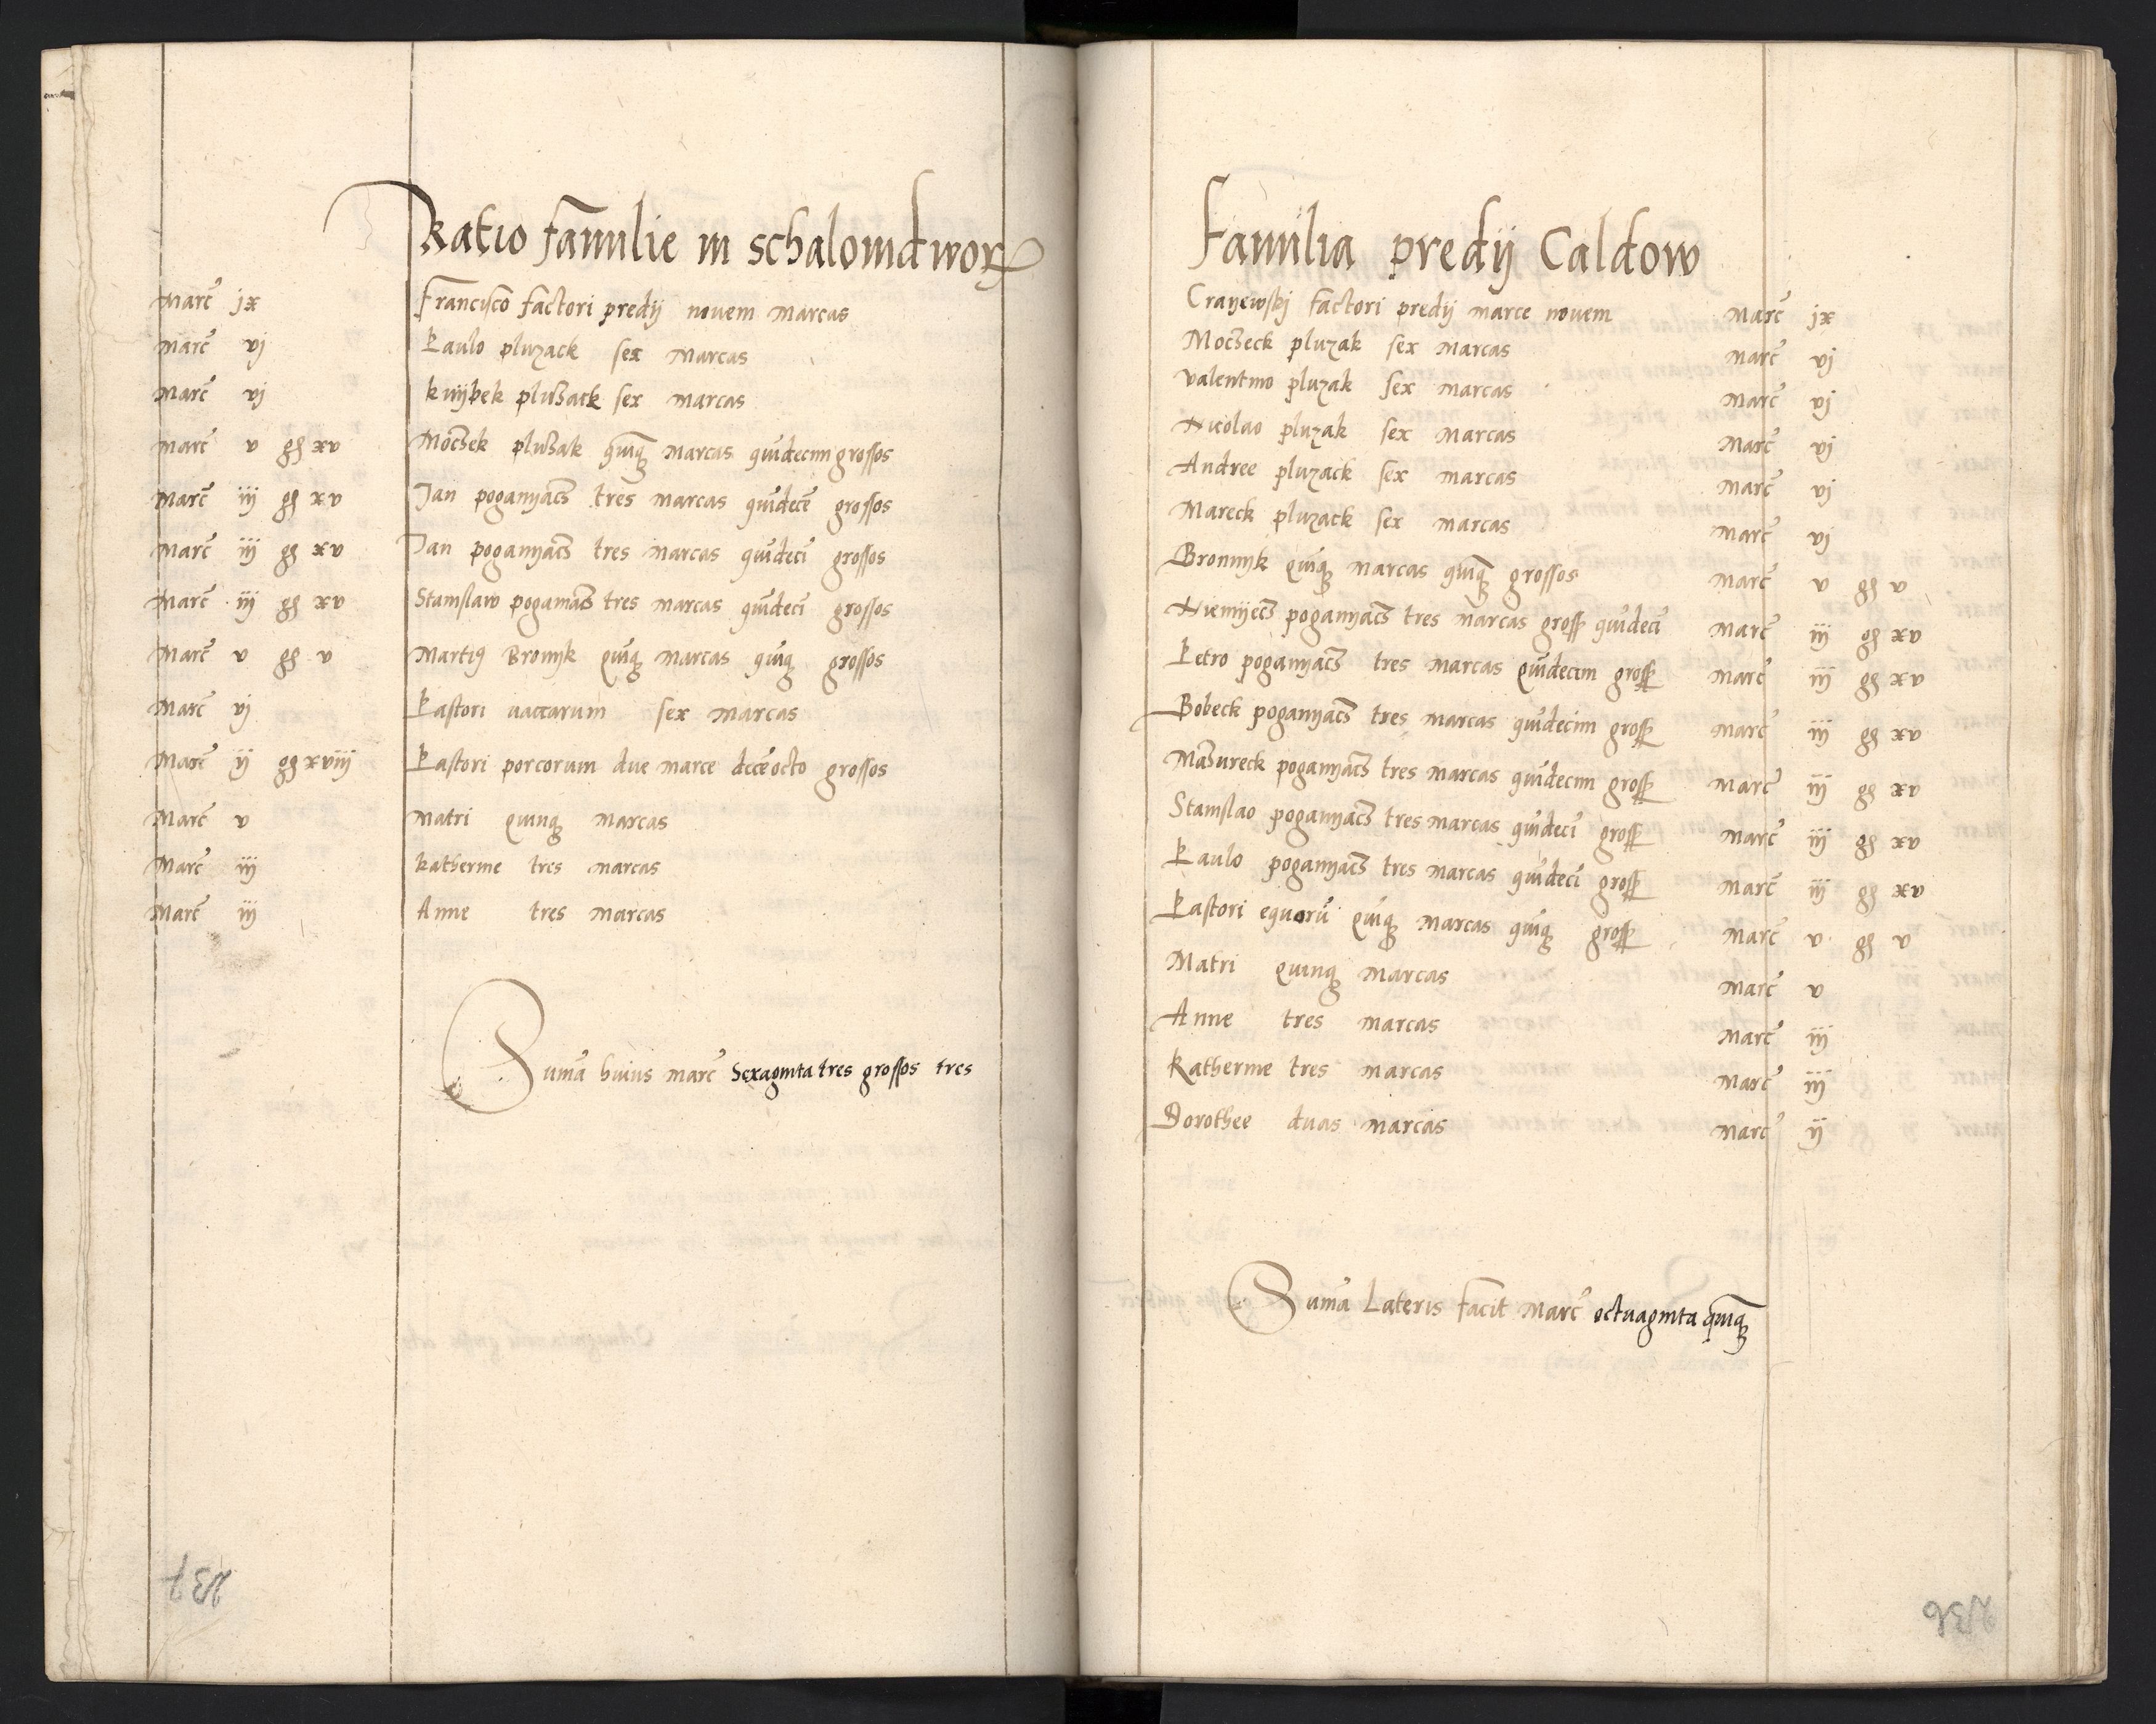 Ratio familie in schalonidwor
Marc̃ jx Francisco factori predij novem marcas
Marc̃ vj Paulo pluzack sex marcas
Marc̃ vj kuijbek plusack sex marcas
Marc̃ v gg xv Moczek plusak quiq̃ marcas quĩdecim grossos
Marc̃ iij gg xv Jan poganyacz tres marcas quĩdecẽ grossos
Marc̃ iij gg xv Jan poganyacz tres marcas quĩdecĩ grossos
Marc̃ iij gg xv Stanislaw poganiacz tres marcas quĩdecĩ grossos
Marc̃ v gg v Martiꝰ Bronyk quĩqꝫ marcas quĩqꝫ grossos
Marc̃ vj Pastori vaccarum sex marcas
Marc̃ ij gg xviij Pastori porcorum due marce dccẽocto grossos
Marc̃ v Matri quinqꝫ marcas
Marc̃ iij katherine tres marcas
Marc̃ iij Anne tres marcas
Sum̃a huius marc̃ Sexaginta tres grossos tres
237
Familia predij Caldow
Crayewskj factori predij marce novem Marc̃ jx
Moczeck pluzak sex marcas Marc̃ vj
Valentino pluzak sex marcas Marc̃ vj
Nicolao pluzak sex marcas Marc̃ vj
Andree pluzack sex marcas Marc̃ vj
Mareck pluzack sex marcas Marc̃ vj
Bronnyk quĩqꝫ marcas quĩqꝫ grossos Marc̃ v gg v
Niemyecz poganyacz tres marcas gross quĩdecĩ Marc̃ iij gg xv
Petro poganyacz tres marcas quĩdecim gross Marc̃ iij gg xv
Bobeck poganyacz tres marcas quĩdecim gross Marc̃ iij gg xv
Mazureck poganyacz tres marcas quĩdecim gross Marc̃ iij gg xv
Stanislao poganyacz tres marcas quĩdecĩ gross Marc̃ iij gg xv
Paulo poganyacz tres marcas quĩdecĩ gross Marc̃ iij gg xv
Pastori equorũ quĩqꝫ marcas quĩqꝫ gross Marc̃ v gg v
Matri quinqꝫ marcas Marc̃ v
Anne tres marcas Marc̃ iij
Katherine tres marcas Marc̃ iij
Dorothee duas marcas Marc̃ ij
Sum̃a Lateris facit marc̃ octuaginta quĩqꝫ
236